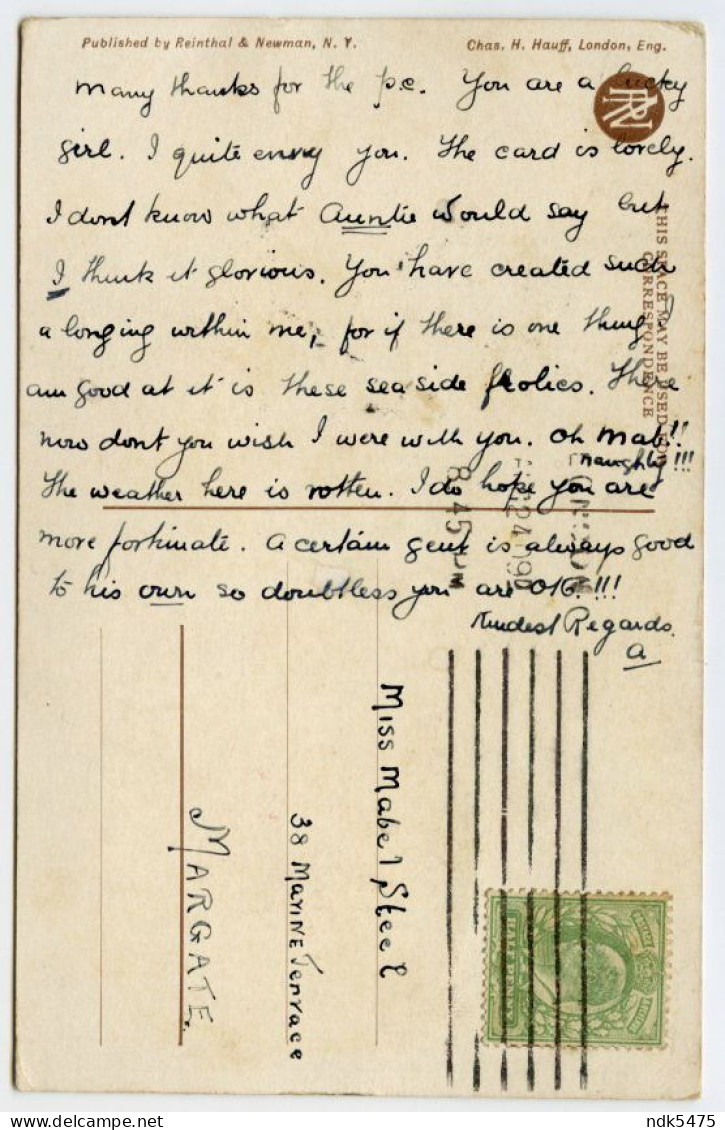 Published by Reinthal & Newman, N. Y.
Chas. H. Hauff, London, Eng.
RN
many thanks for the p.c. You are a lucky
girl. I quite envy you. The card is lovely.
I dont know what Auntie would say but
I think it glorious. You have created such
a longing within me, for if there is one thing I
am good at it is these seaside frolics. There
now dont you wish I were with you. Oh Mab!!
naughty!!!
The weather here is rotten. I do hope you are
more fortunate. A certain gent is always good
to his own so doubtless you are O.K.!!!
Kindest Regards.
A
THIS SPACE MAY BE USED FOR
CORRESPONDENCE
8.45 PM
Miss Mabel Steel
38 Marine Terrace
MARGATE.
ndk5475